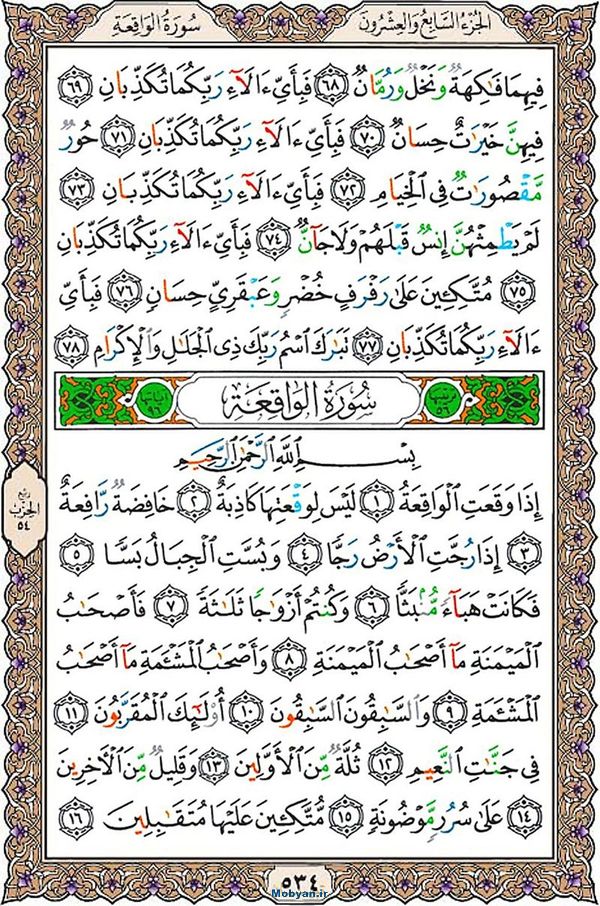 الجُزءُ السَّابِعُ وَالعِشرُونَ
سُورَةُ الوَاقِعَةِ
فِيهِمَا فَاكِهَةٌ وَنَخْلٌ وَرُمَّانٌ ٦٨ فَبِأَيِّ ءَالَآءِ رَبِّكُمَا تُكَذِّبَانِ ٦٩
فِيهِنَّ خَيْرَاتٌ حِسَانٌ ٧٠ فَبِأَيِّ ءَالَآءِ رَبِّكُمَا تُكَذِّبَانِ ٧١ حُورٌ
مَّقْصُورَاتٌ فِي الْخِيَامِ ٧٢ فَبِأَيِّ ءَالَآءِ رَبِّكُمَا تُكَذِّبَانِ ٧٣
لَمْ يَطْمِثْهُنَّ إِنسٌ قَبْلَهُمْ وَلَا جَآنٌّ ٧٤ فَبِأَيِّ ءَالَآءِ رَبِّكُمَا تُكَذِّبَانِ
٧٥ مُتَّكِئِينَ عَلَىٰ رَفْرَفٍ خُضْرٍ وَعَبْقَرِيٍّ حِسَانٍ ٧٦ فَبِأَيِّ
ءَالَآءِ رَبِّكُمَا تُكَذِّبَانِ ٧٧ تَبَارَكَ اسْمُ رَبِّكَ ذِي الْجَلَالِ وَالْإِكْرَامِ ٧٨
ترتيبها ٥٦
سُورَةُ الوَاقِعَةِ
آياتها ٩٦
بِسْمِ اللَّهِ الرَّحْمَٰنِ الرَّحِيمِ
إِذَا وَقَعَتِ الْوَاقِعَةُ ١ لَيْسَ لِوَقْعَتِهَا كَاذِبَةٌ ٢ خَافِضَةٌ رَّافِعَةٌ
٣ إِذَا رُجَّتِ الْأَرْضُ رَجًّا ٤ وَبُسَّتِ الْجِبَالُ بَسًّا ٥
فَكَانَتْ هَبَآءً مُّنبَثًّا ٦ وَكُنتُمْ أَزْوَاجًا ثَلَاثَةً ٧ فَأَصْحَابُ
الْمَيْمَنَةِ مَآ أَصْحَابُ الْمَيْمَنَةِ ٨ وَأَصْحَابُ الْمَشْـَٔمَةِ مَآ أَصْحَابُ
الْمَشْـَٔمَةِ ٩ وَالسَّابِقُونَ السَّابِقُونَ ١٠ أُولَٰٓئِكَ الْمُقَرَّبُونَ ١١
فِي جَنَّاتِ النَّعِيمِ ١٢ ثُلَّةٌ مِّنَ الْأَوَّلِينَ ١٣ وَقَلِيلٌ مِّنَ الْآخِرِينَ
١٤ عَلَىٰ سُرُرٍ مَّوْضُونَةٍ ١٥ مُّتَّكِئِينَ عَلَيْهَا مُتَقَابِلِينَ ١٦
ربع
الحزب
٥٤
٥٣٤
Mobyan.ir